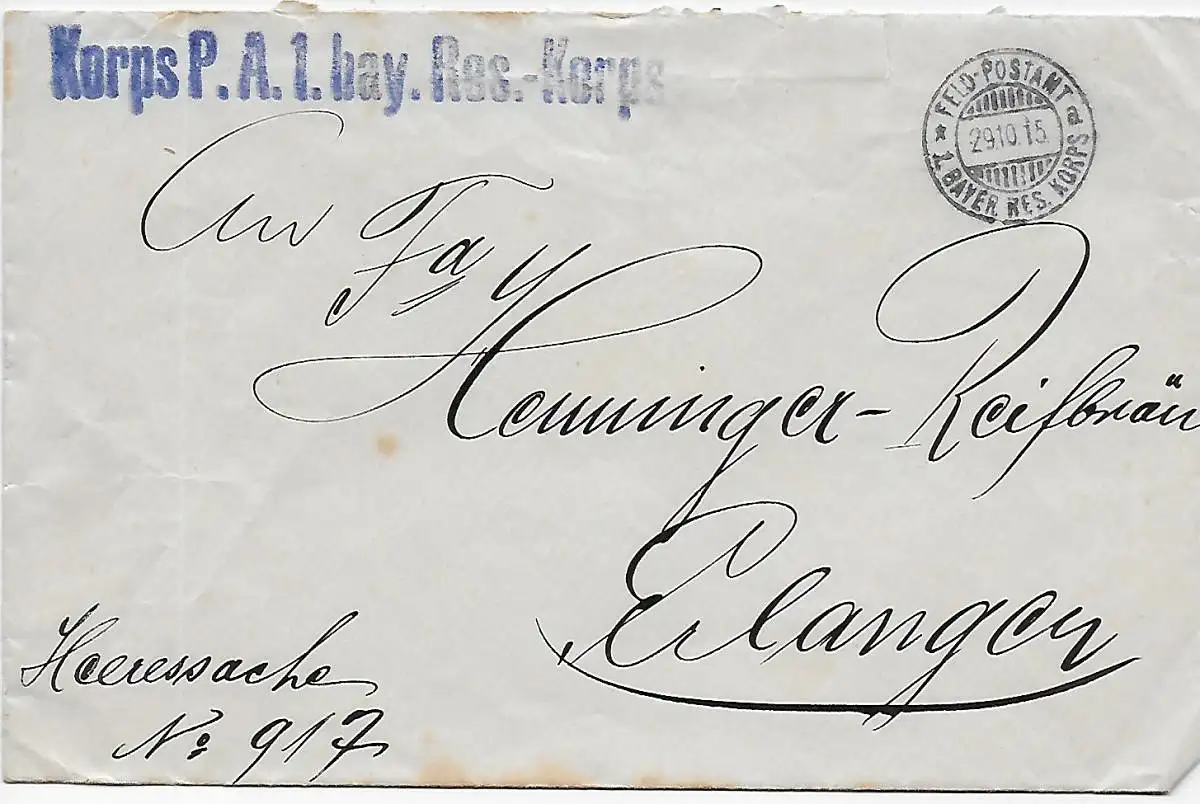 Korps P. A. 1. bay. Res.-Korps
* FELD-POSTAMT d
29.10.15.
1. BAYER RES. KORPS
An Fa
Henninger-Reifbräu
Erlangen
Heeressache
No 917